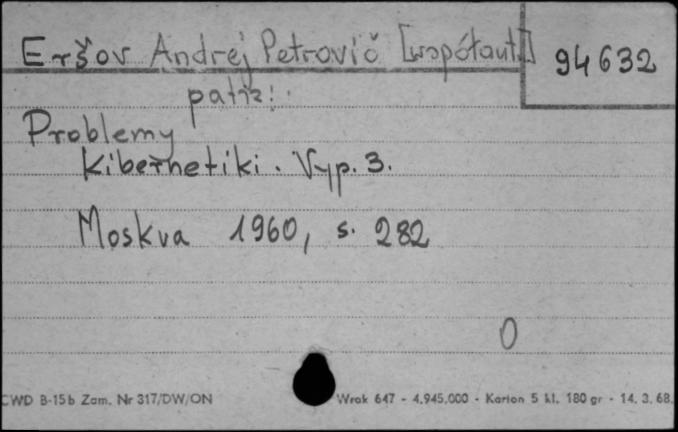 Eršov Andrej Petrovič [współaut.]
94632
patrz:
Problemy
Kibernetiki. Vyp. 3.
Moskva 1960, s. 282
0
CWD B-15b Zam. Nr 317/DW/ON
Wrak 647 - 4.945.000 - Karton 5 kl. 180 gr - 14. 3. 68.